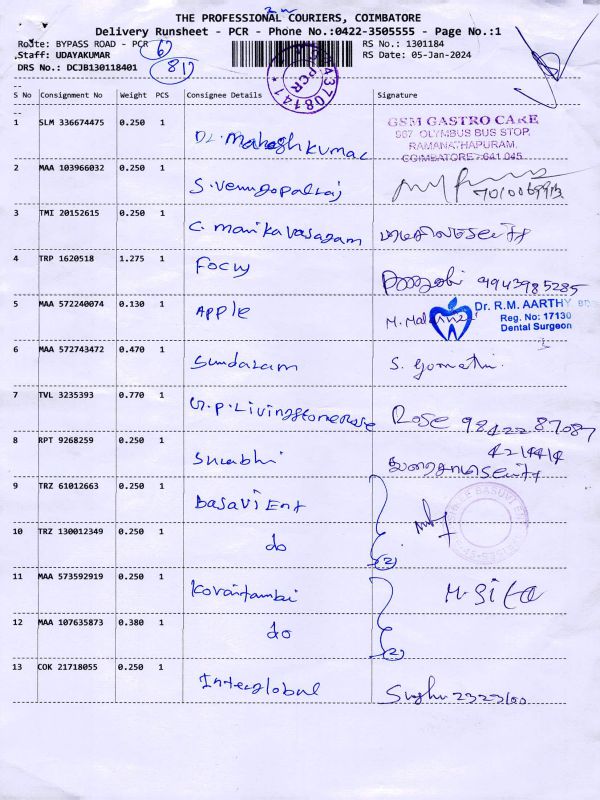 THE PROFESSIONAL COURIERS, COIMBATORE
Delivery Runsheet - PCR - Phone No.:0422-3505555 - Page No.:1
Route: BYPASS ROAD - PCR
RS No.: 1301184
Staff: UDAYAKUMAR
RS Date: 05-Jan-2024
DRS No.: DCJB130118401
S No Consignment No Weight PCS Consignee Details Signature
1 SLM 336674475 0.250 1 Dr. Mahesh kumar
GSM GASTRO CARE
967 OLYMBUS BUS STOP,
RAMANATHAPURAM,
COIMBATORE-641 045
2 MAA 103966032 0.250 1 S. Venugopalraj
3 TMI 20152615 0.250 1 C. manikavasagam
4 TRP 1620518 1.275 1 Focus 9943985285
5 MAA 572240074 0.130 1 Apple
Dr. R.M. AARTHY BDS
Reg. No: 17130
Dental Surgeon
6 MAA 572743472 0.470 1 Sundaram S. Gomathi
7 TVL 3235393 0.770 1 G.P. Livingstone Rose Rose 98422 87087
8 RPT 9268259 0.250 1 Surabhi 4214414
9 TRZ 61012663 0.250 1 Basavi Ent
10 TRZ 130012349 0.250 1 do (2)
11 MAA 573592919 0.250 1 Kovaitambi M. Sita
12 MAA 107635873 0.380 1 do (2)
13 COK 21718055 0.250 1 Interglobal